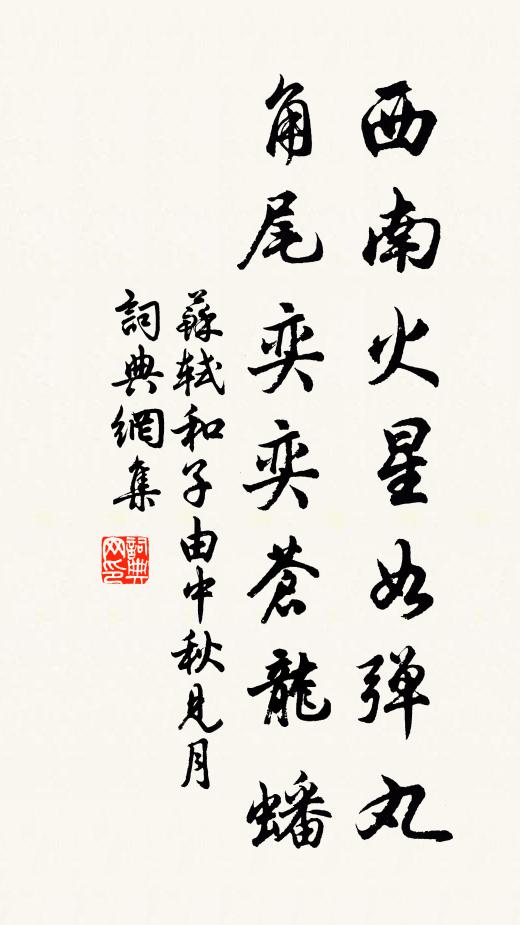 西南火星如弹丸
角尾奕奕蒼龍蟠
蘇軾和子由中秋見月
詞典網集
詞典网印